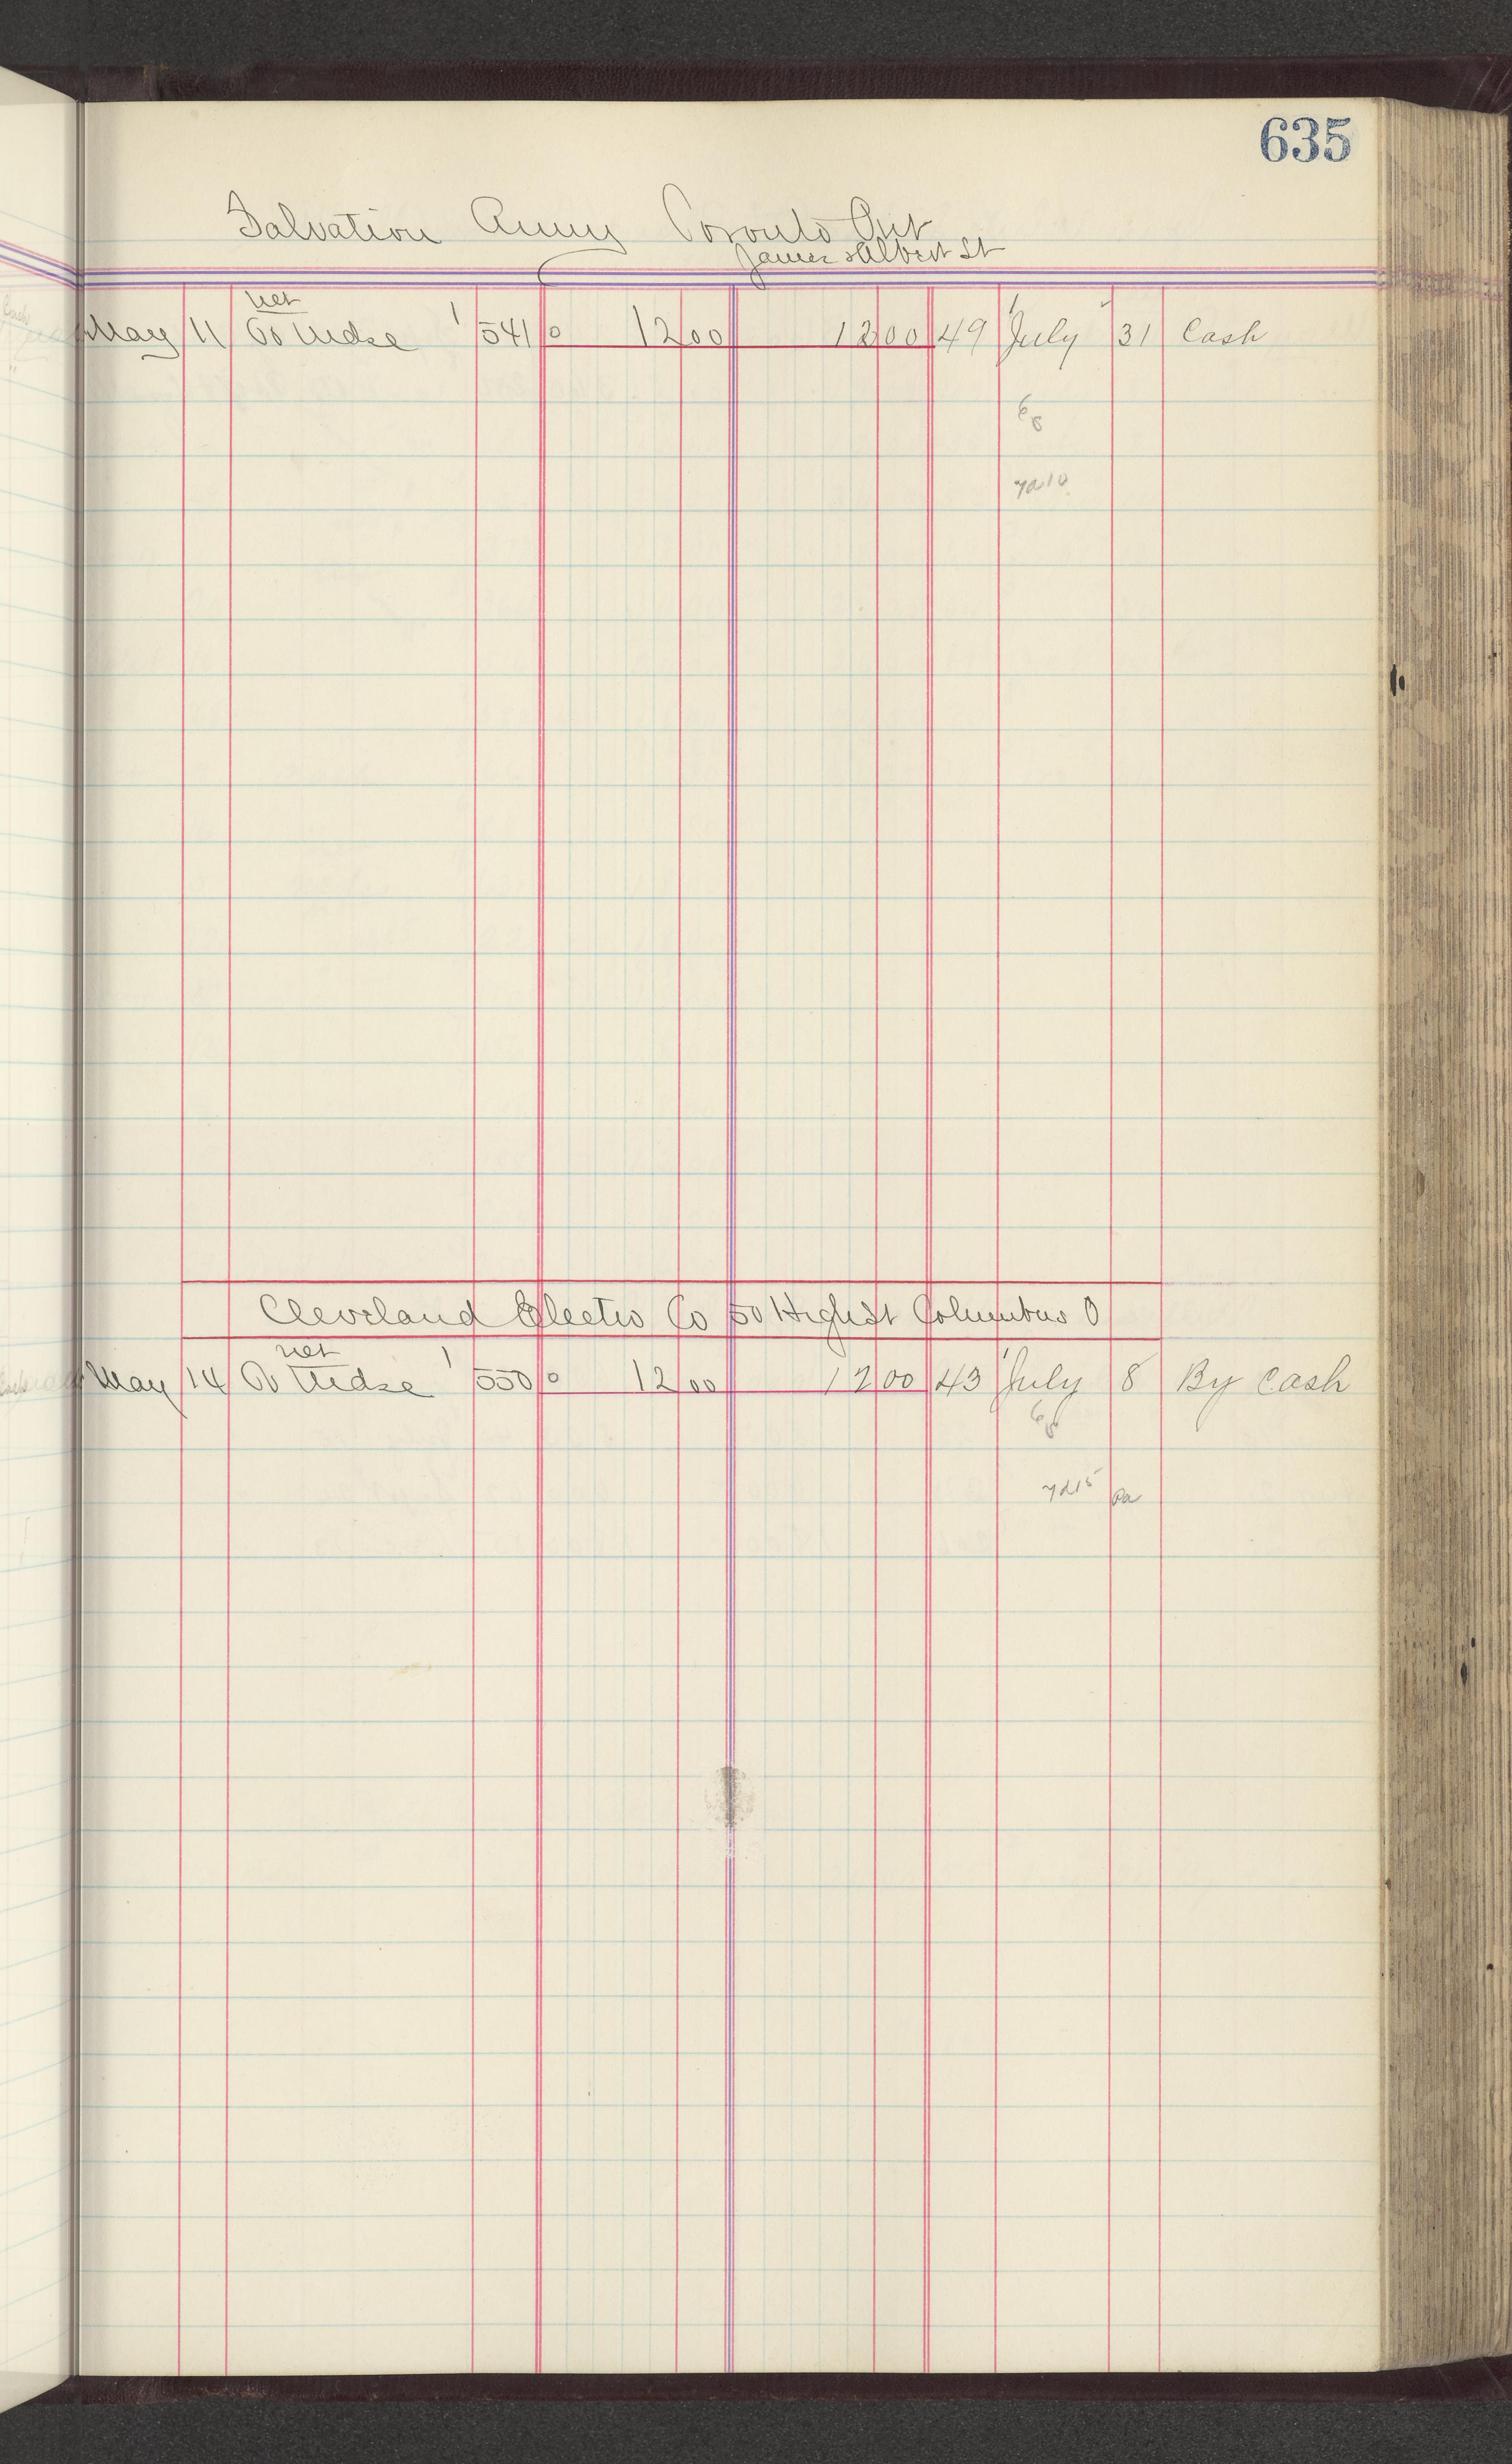 635
Salvation Army Toronto Ont
James & Albert St
net
May 11 To Mdse 1 541 0 12 00 12 00 49 July 31 Cash
6
8
Cleveland Electro Co 50 High St Columbus O
net
May 14 To Mdse 1 550 0 12 00 12 00 43 July 8 By Cash
6
8